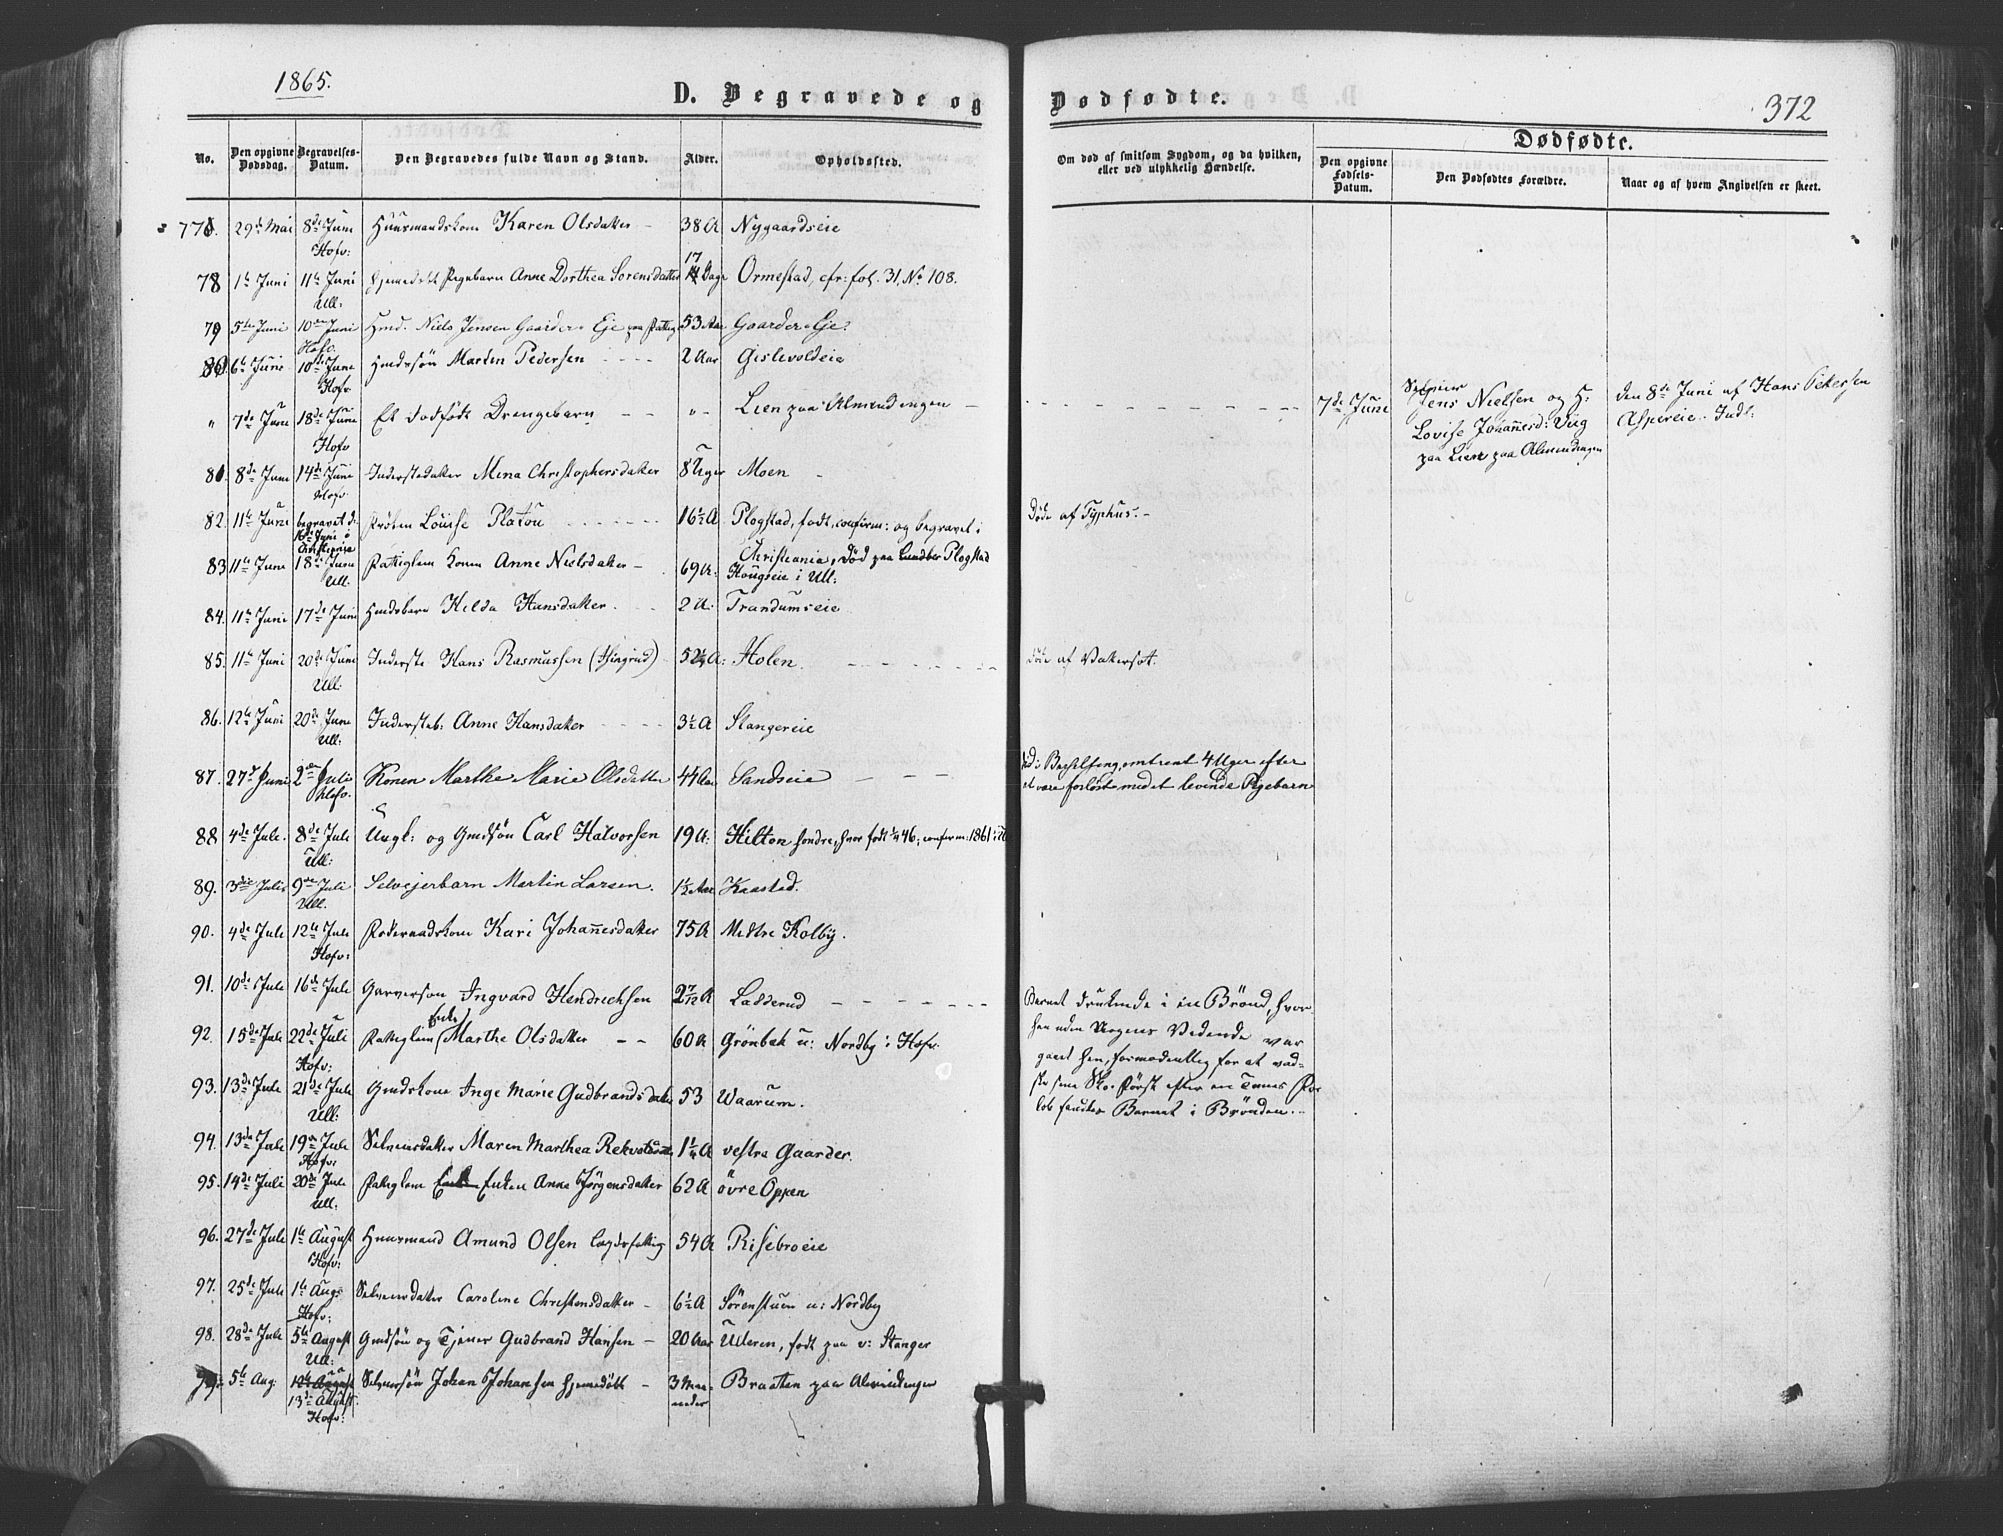 1865.
D. Begravede og Dødfødte.
372
Dødfødte.
No.
Den opgivne Dødsdag.
Begravelses-Datum.
Den Begravedes fulde Navn og Stand.
Alder.
Opholdssted.
Om død af smitsom Sygdom, og da hvilken,
eller ved ulykkelig Hændelse.
Den opgivne Fødsels-Datum.
Den Dødfødtes Forældre.
Naar og af hvem Angivelsen er skeet.
77. 29de Mai 8de Juni Huusmandskone Karen Olsdatter - 38 A Nygaardseie
Hofv:
78 1te Juni 11te Juni hjemedøbt Pigebarn Anne Dorthea Sorensdatter 17 Dage Ormestad, cfr: fol. 31, No 108.
Ull:
79 5te Juni 10de Juni Hmd. Niels Jensen Gaarder Eje 53 Aar Gaarder-Eje.
Hofv.
80 6te Juni 10de June Hmdssøn Martin Pedersen - - - - 2 Aar Gislevoldeie
Hofv
" 7de Juni 18de June Et dødfødt Drengebarn - - " - Lien paa Almindingen -
Hofv
7de Juni
Selveier
Jens Nielsen og H:
Lovise Johannesd: Viig
paa Lien paa Almindingen
den 8de Juni af Hans Petersen
Aspereie. Indl:
81. 8de June 14de Juni Inderstedatter Mina Christophersdatter 8 Uger Moen -
Hofv.
82. 11te Juni begravet d: Frøken Louise Platou - - - - - 16½ A Plogstad, født, confirm: og begravet i
16de Juni i Christiania
Christiania, død paa Plogstad
Døde af Typhus. -
83 11te June 18de June Fattiglem Konen Anne Nielsdatter - 69 A. Hougseie i Ull:
Ull:
84. 11te Juni 17de Juni Hmdsbarn Hilda Hansdatter. 2 A: Trandumseie
85. 11te Juni 20de June Inderste Hans Rasmussen 52½ A: Holen.
Ull:
døde af Vatersot.
86. 12te Juni 20de June Indersteb: Anne Hansdatter - - - - 3½ A Stangereie
Ull:
87. 27de Juni 2den Juli Konen Marthe Marie Olsdatter 44 Aar Sandseie - - -
Hofv.
i Barselseng, omtrent 4 Uger efter
at være forløst med et levende Pigebarn
88 4de Jule. 8de Jule Ungk: og Gmdsøn Carl Halvorsen 19 A: Hilton søndre, hvor født 46, confirm: 1861
Ull:
89. 3die Julii 9de Juli Selvejerbarn Martin Larsen. 1½ Aar Kaastad.
Ull.
90. 4de Jule 12te Jule Føderaadskone Kari Johannesdatter 75 A Midtre Kolby.
Hofv:
91. 10de Jule 16de Jule Garversøn Ingvard Hendrichsen 2 7/12 A Ladderud - - - - -
Barnet druknede i en Brønd, hvor
hen uden Nogens Vidende var
gaaet hen, formodentlig for at vad-
ske sine Sko. Først efter en Times For
løb fandtes Barnet i Brønden. -
92. 15de Jule 22de Juli Fattiglem Enke Marthe Olsdatter - - 60 A Grönbak u: Nordby i Hofv.
Hofv:
93. 13de Jule 21de Jule Gmdskone Inge Marie Gudbrandsdatter 53 Waarum.
Ull:
94. 13de Jule 19de Jule Selveiersdatter Maren Marthea 1¼ A vestre Gaarder.
Hofv:
95. 14de Juli 20de Jule Fattiglem Enken Anne Jörgensdatter 62 A övre Oppen
Ull:
96. 27de Jule 1te August Huusmand Amund Olsen Lægdsfattig 54 A Risebroeie
Hofv:
97. 25de Jule 1te Aug: Selveiersdatter Caroline Christensdatter - 6½ A Sörenstuen u: Nordby
Hofv:
98. 28de Jule 5te August Gmdsön og Tjener Gudbrand Hansen - 20 Aar Uleren, født paa v: Stanger
Ull:
5te Aug. 12te August Selveiersön Johan Johansen hjemedöbt - 3 Maa- Braaten paa Almindingen
13de August. neder
Hofv: